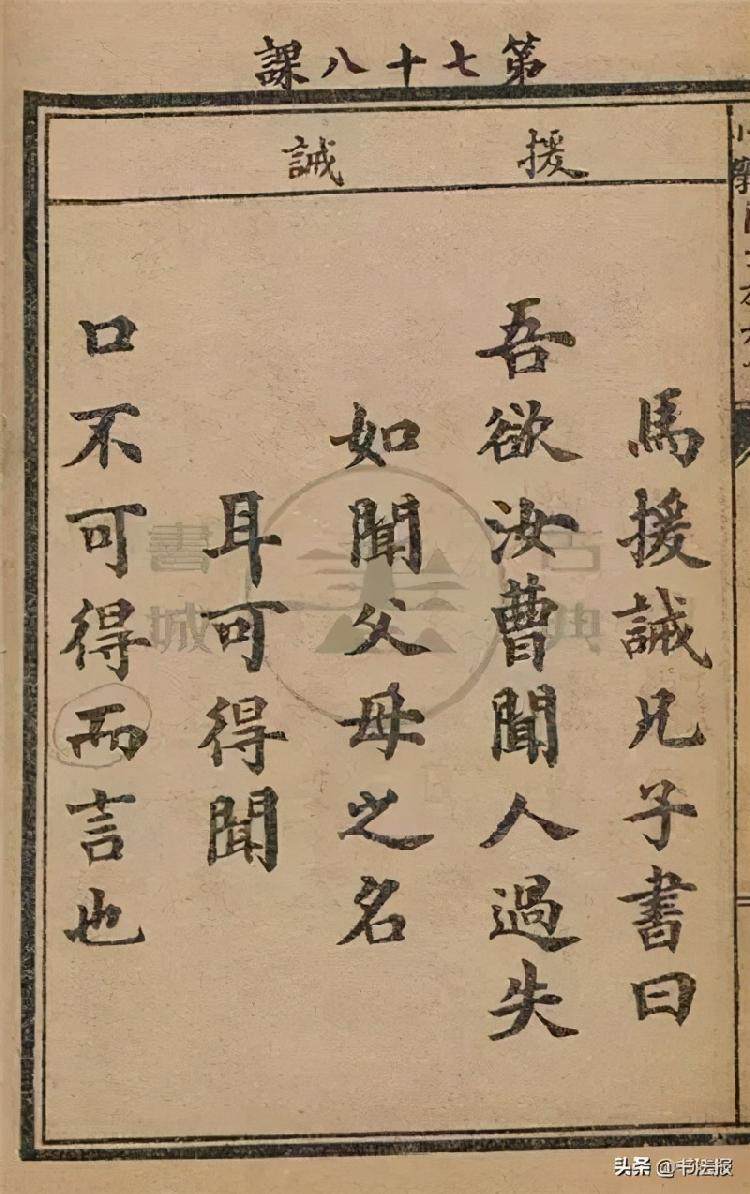 第七十八課
援誡
馬援誡兄子書曰
吾欲汝曹聞人過失
如聞父母之名
耳可得聞
口不可得而言也
古典
書城
头条 @书法报